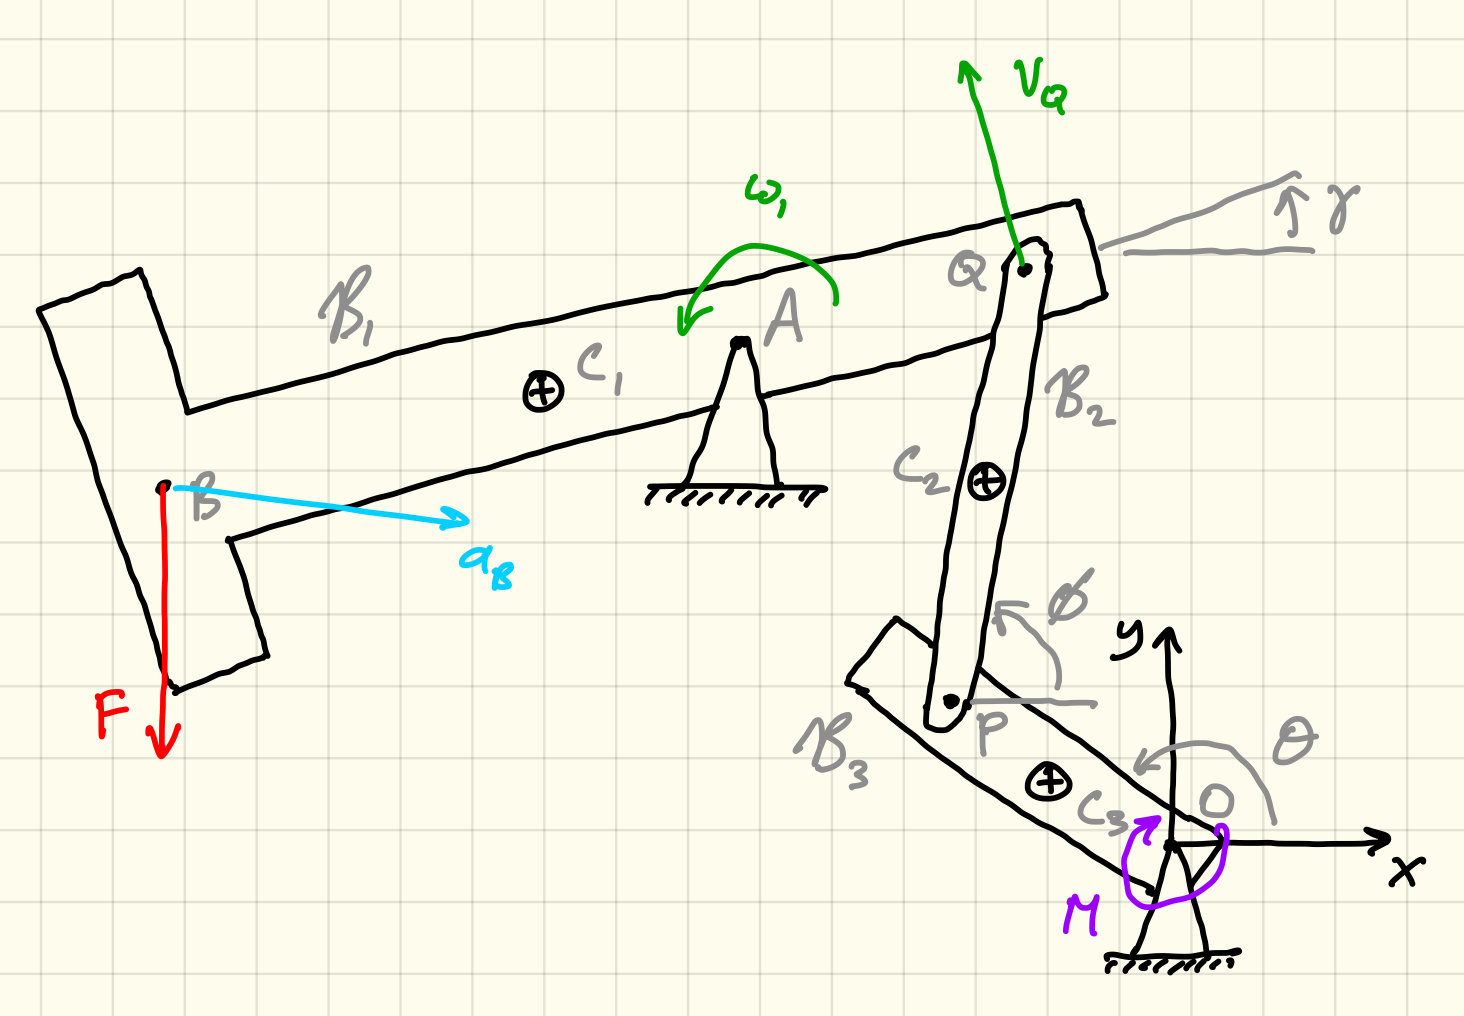 V_Q
ω₁
γ
Q
B₁
A
C₁
B₂
C₂
B
a_B
ϕ
y
F
P
θ
B₃
O
C₃
x
M